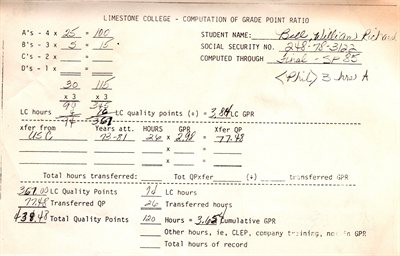 LIMESTONE COLLEGE - COMPUTATION OF GRADE POINT RATIO
A's - 4 x 25 = 100
STUDENT NAME: Bell, William Richard
B's - 3 x 5 = 15
SOCIAL SECURITY NO. 248-78-3122
C's - 2 x =
COMPUTED THROUGH Final - SP 85
D's - 1 x =
(Phil) 3 hrs A
30 115
x 3 x 3
LC hours LC quality points (÷) = 3.84 LC GPR
94 361
xfer from Years att. HOURS GPR Xfer QP
USC 73-81 26 x 2.98 = 77.48
x =
x =
Total hours transferred: Tot QPxfer (÷) transferred GPR
361.00 LC Quality Points 94 LC hours
77.48 Transferred QP 26 Transferred hours
438.48 Total Quality Points 120 Hours = 3.654 Cumulative GPR
Other hours, ie, CLEP, company training, not in GPR
Total hours of record